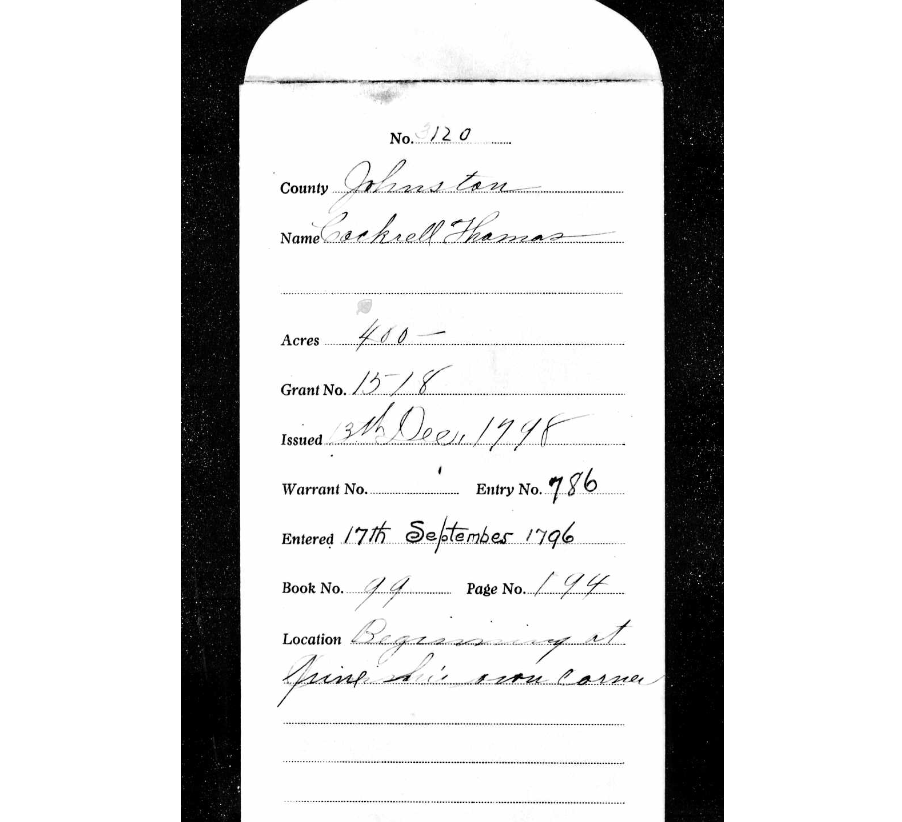 No. 3120
County Johnston
Name Cockrell Thomas
Acres 400 —
Grant No. 1518
Issued 13th Dec., 1798
Warrant No. Entry No. 786
Entered 17th September 1796
Book No. 99 Page No. 194
Location Beginning at
pine his own corner